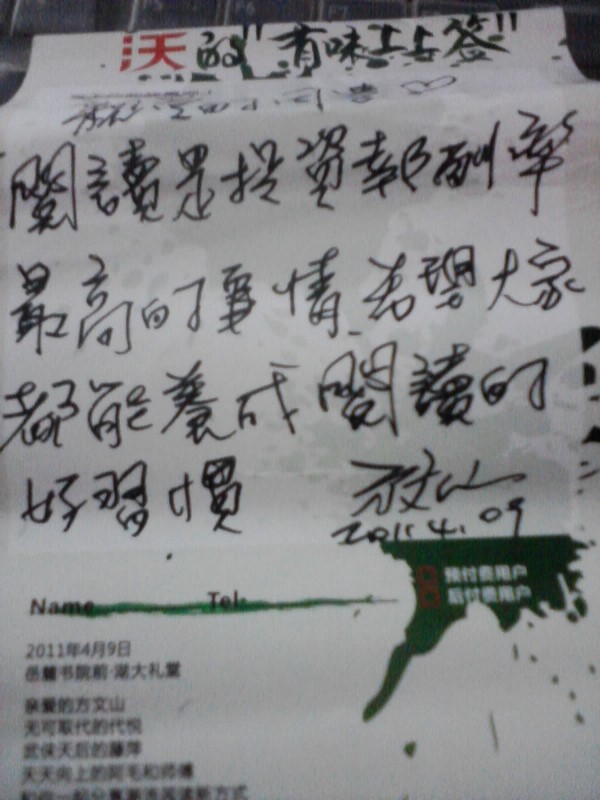 沃的"有味上上签"
閱讀是投資報酬率
最高的事情.希望大家
都能養成閱讀的
好習慣
文山
2011.4.09
预付费用户
后付费用户
Name Tel:
2011年4月9日
岳麓书院前·湖大礼堂
亲爱的方文山
无可取代的代悦
武侠天后的藤萍
天天向上的阿毛和师傅
和你一起分享潮流阅读新方式